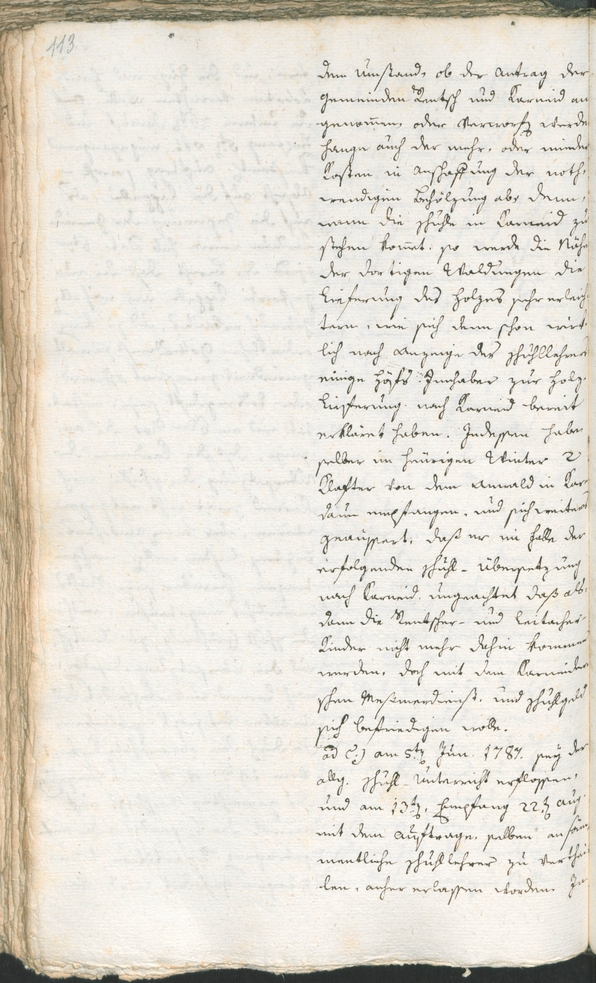 113
dem Umstand, ob der Antrag der
gemeinden Rentsch und Karneid an
genommen, oder verworfen werde
hange auch der mehr, oder minder
Kosten in Anschaffung der noth,
wendigen Behölzung abe. denn,
wann die Schuhle in Karneid zu
stehen kommt, so werde die Nähe
der dortigen Waldungen die
Lieferung des Holzes sehr erleich
tern, wie sich dann schon wirk
lich nach Anzeige des Schuhllehrers
einige Höfs-Inhaber zur Holz-
Lieferung nach Karneid bereit
erkläret haben. Indessen habe
selber im heurigen Winter 2
Klafter von dem Anwald in Kar
daun empfangen, und sich weiters
geäussert, daß er im Falle der
erfolgenden Schuhl-Übersetzung
nach Karneid, ungeachtet daß als
dann die Rentscher- und Leitacher-
Kinder nicht mehr dahin kommen
werden, doch mit dem Karneider
schen Messnerdienst, und Schuhlgeld
sich befriedigen wolle.
ad C.) am 5ten Jun. 1787. sey der
allg. Schuhl-Unterricht erflossen,
und am 13ten, Empfang 22ten Aug.
mit dem Auftrage, selben an säm
mentliche Schuhllehrer zu verthei
len, anher erlassen worden. In